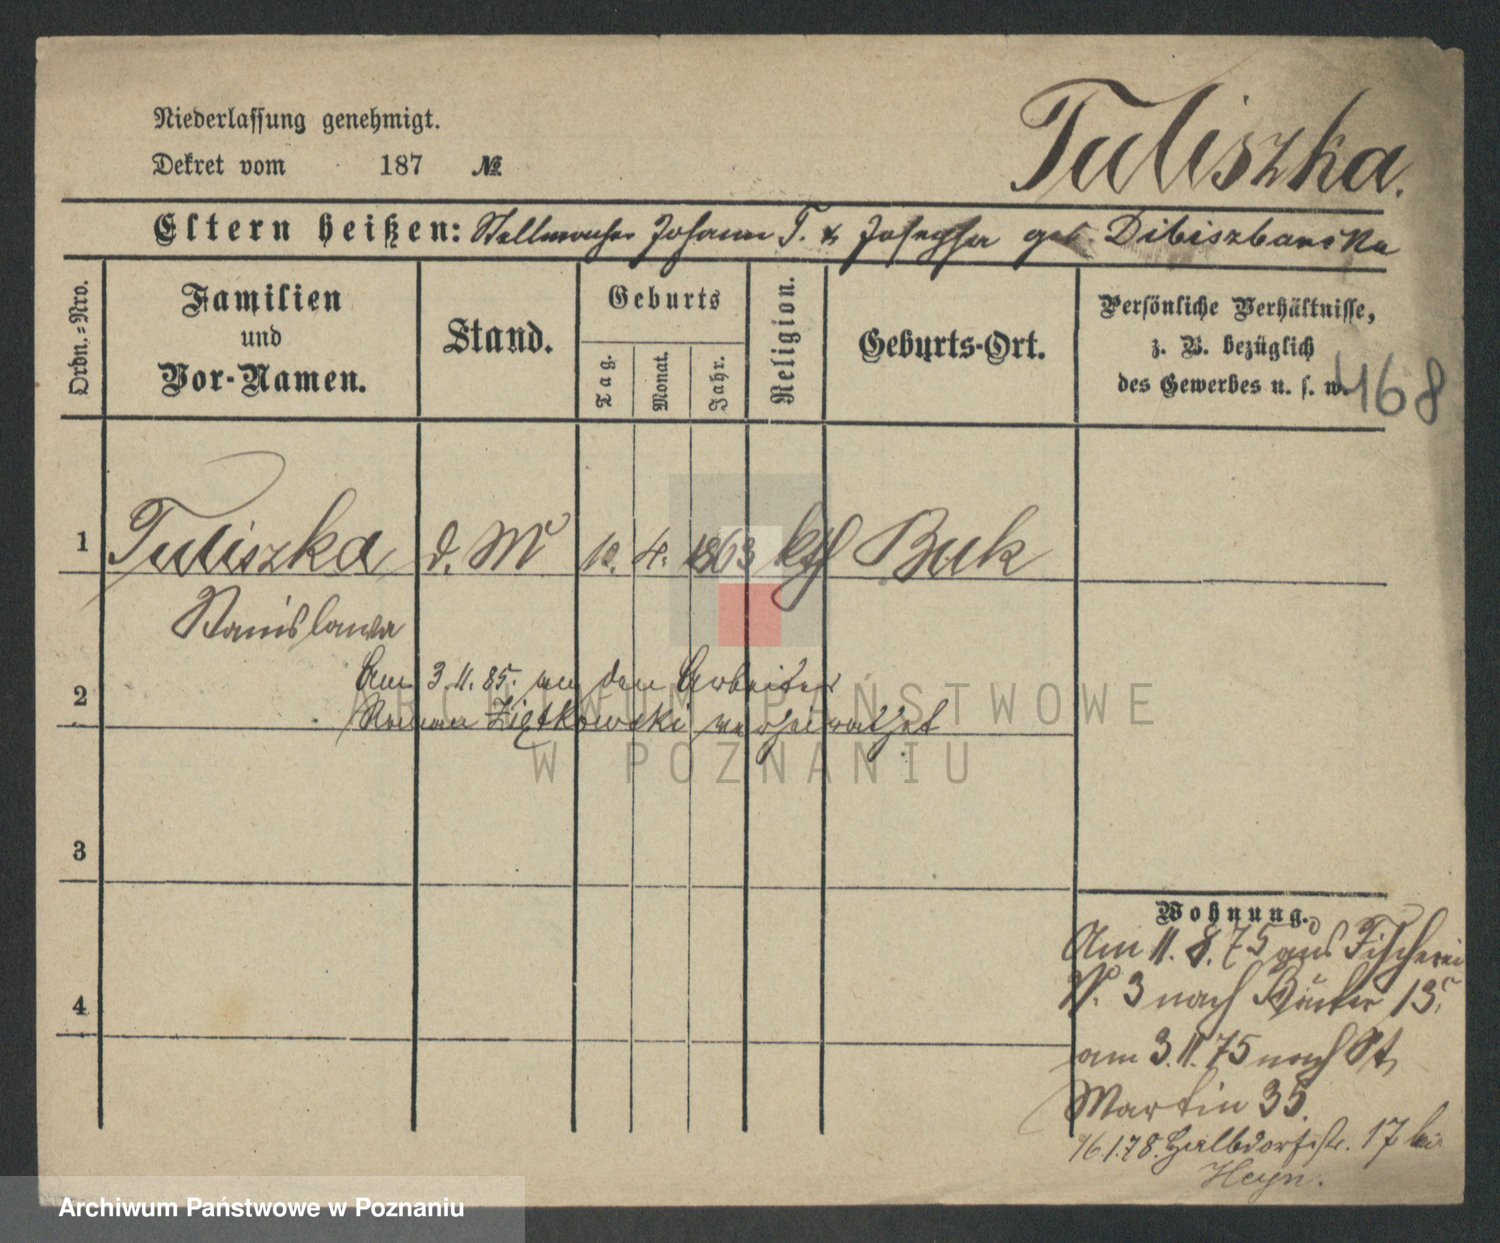 Niederlassung genehmigt.
Dekret vom 187 №
Tuliszka.
Eltern heißen: Stellmacher Johann T. & Josepha geb. Dibiszbanska
Ordn.-Nro.
Familien
und
Vor-Namen.
Stand.
Geburts
Tag.
Monat.
Jahr.
Religion.
Geburts-Ort.
Persönliche Verhältnisse,
z. B. bezüglich
des Gewerbes u. s. w.
468
1 Tuliszka d. M 10. 4. 1863 kth Buk
Stanislawa
2
Am 3.11.85. an den Arbeiter
Roman Ziętkowski verheirathet
3
4
Wohnung.
Am 11.8.75 aus Fischerei
N. 3 nach 13,
am 3.11.75 nach St
Martin 35.
16.1.78. Halbdorfstr. 17 bei
Heyn.
ARCHIWUM PAŃSTWOWE
W POZNANIU
Archiwum Państwowe w Poznaniu